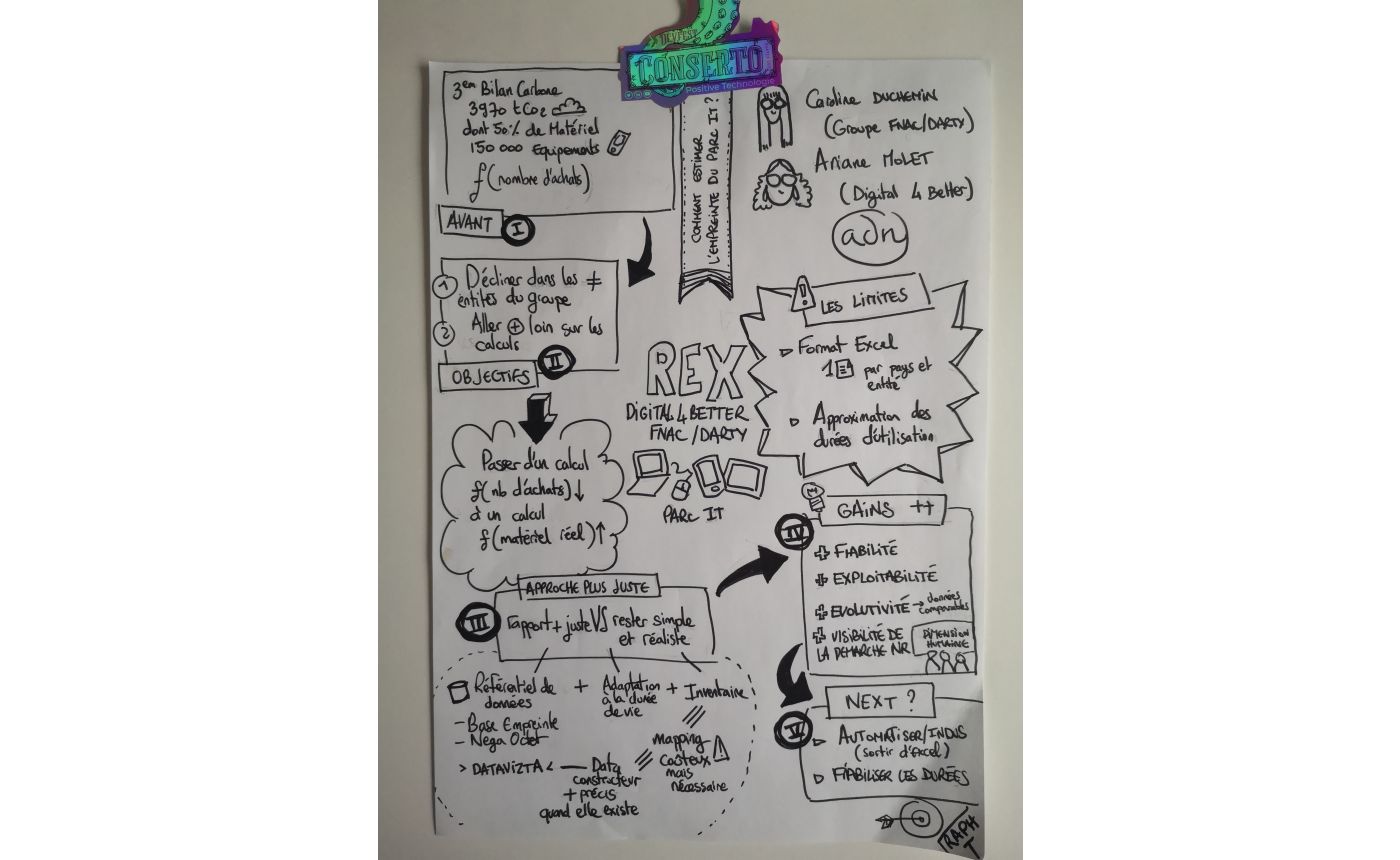 DEVFEST
CONSERTO
Positive Technologie
COMMENT ESTIMER
L'EMPREINTE DU PARC IT ?
Caroline DUCHEMIN
(Groupe FNAC/DARTY)
Ariane MOLET
(Digital 4 Better)
adn
3em Bilan Carbone
3970 tCO2
dont 50% de Matériel
150 000 Equipements
f(nombre d'achats)
AVANT I
1 Décliner dans les ≠
entités du groupe
2 Aller + loin sur les
calculs
OBJECTIFS II
REX
DIGITAL 4 BETTER
FNAC / DARTY
PARC IT
Passer d'un calcul
f(nb d'achats) ↓
à un calcul
f(matériel réel) ↑
APPROCHE PLUS JUSTE
III
rapport + juste VS rester simple
et réaliste
Référentiel de
données
- Base Empreinte
- Nega Octet
> DATAVIZTA <
+ Adaptation
à la durée
de vie
+ Inventaire
mapping
coûteux
mais
nécessaire
Data
constructeur
+ précis
quand elle existe
LES LIMITES
Format Excel
1 par pays et
entité
Approximation des
durées d'utilisation
GAINS ++
IV
+ FIABILITÉ
+ EXPLOITABILITÉ
+ EVOLUTIVITÉ → données
comparables
+ VISIBILITÉ DE
LA DEMARCHE NR
DIMENSION
HUMAINE
NEXT ?
V
AUTOMATISER/INDUS
(sortir d'Excel)
FIABILISER LES DURÉES
RAPH
T